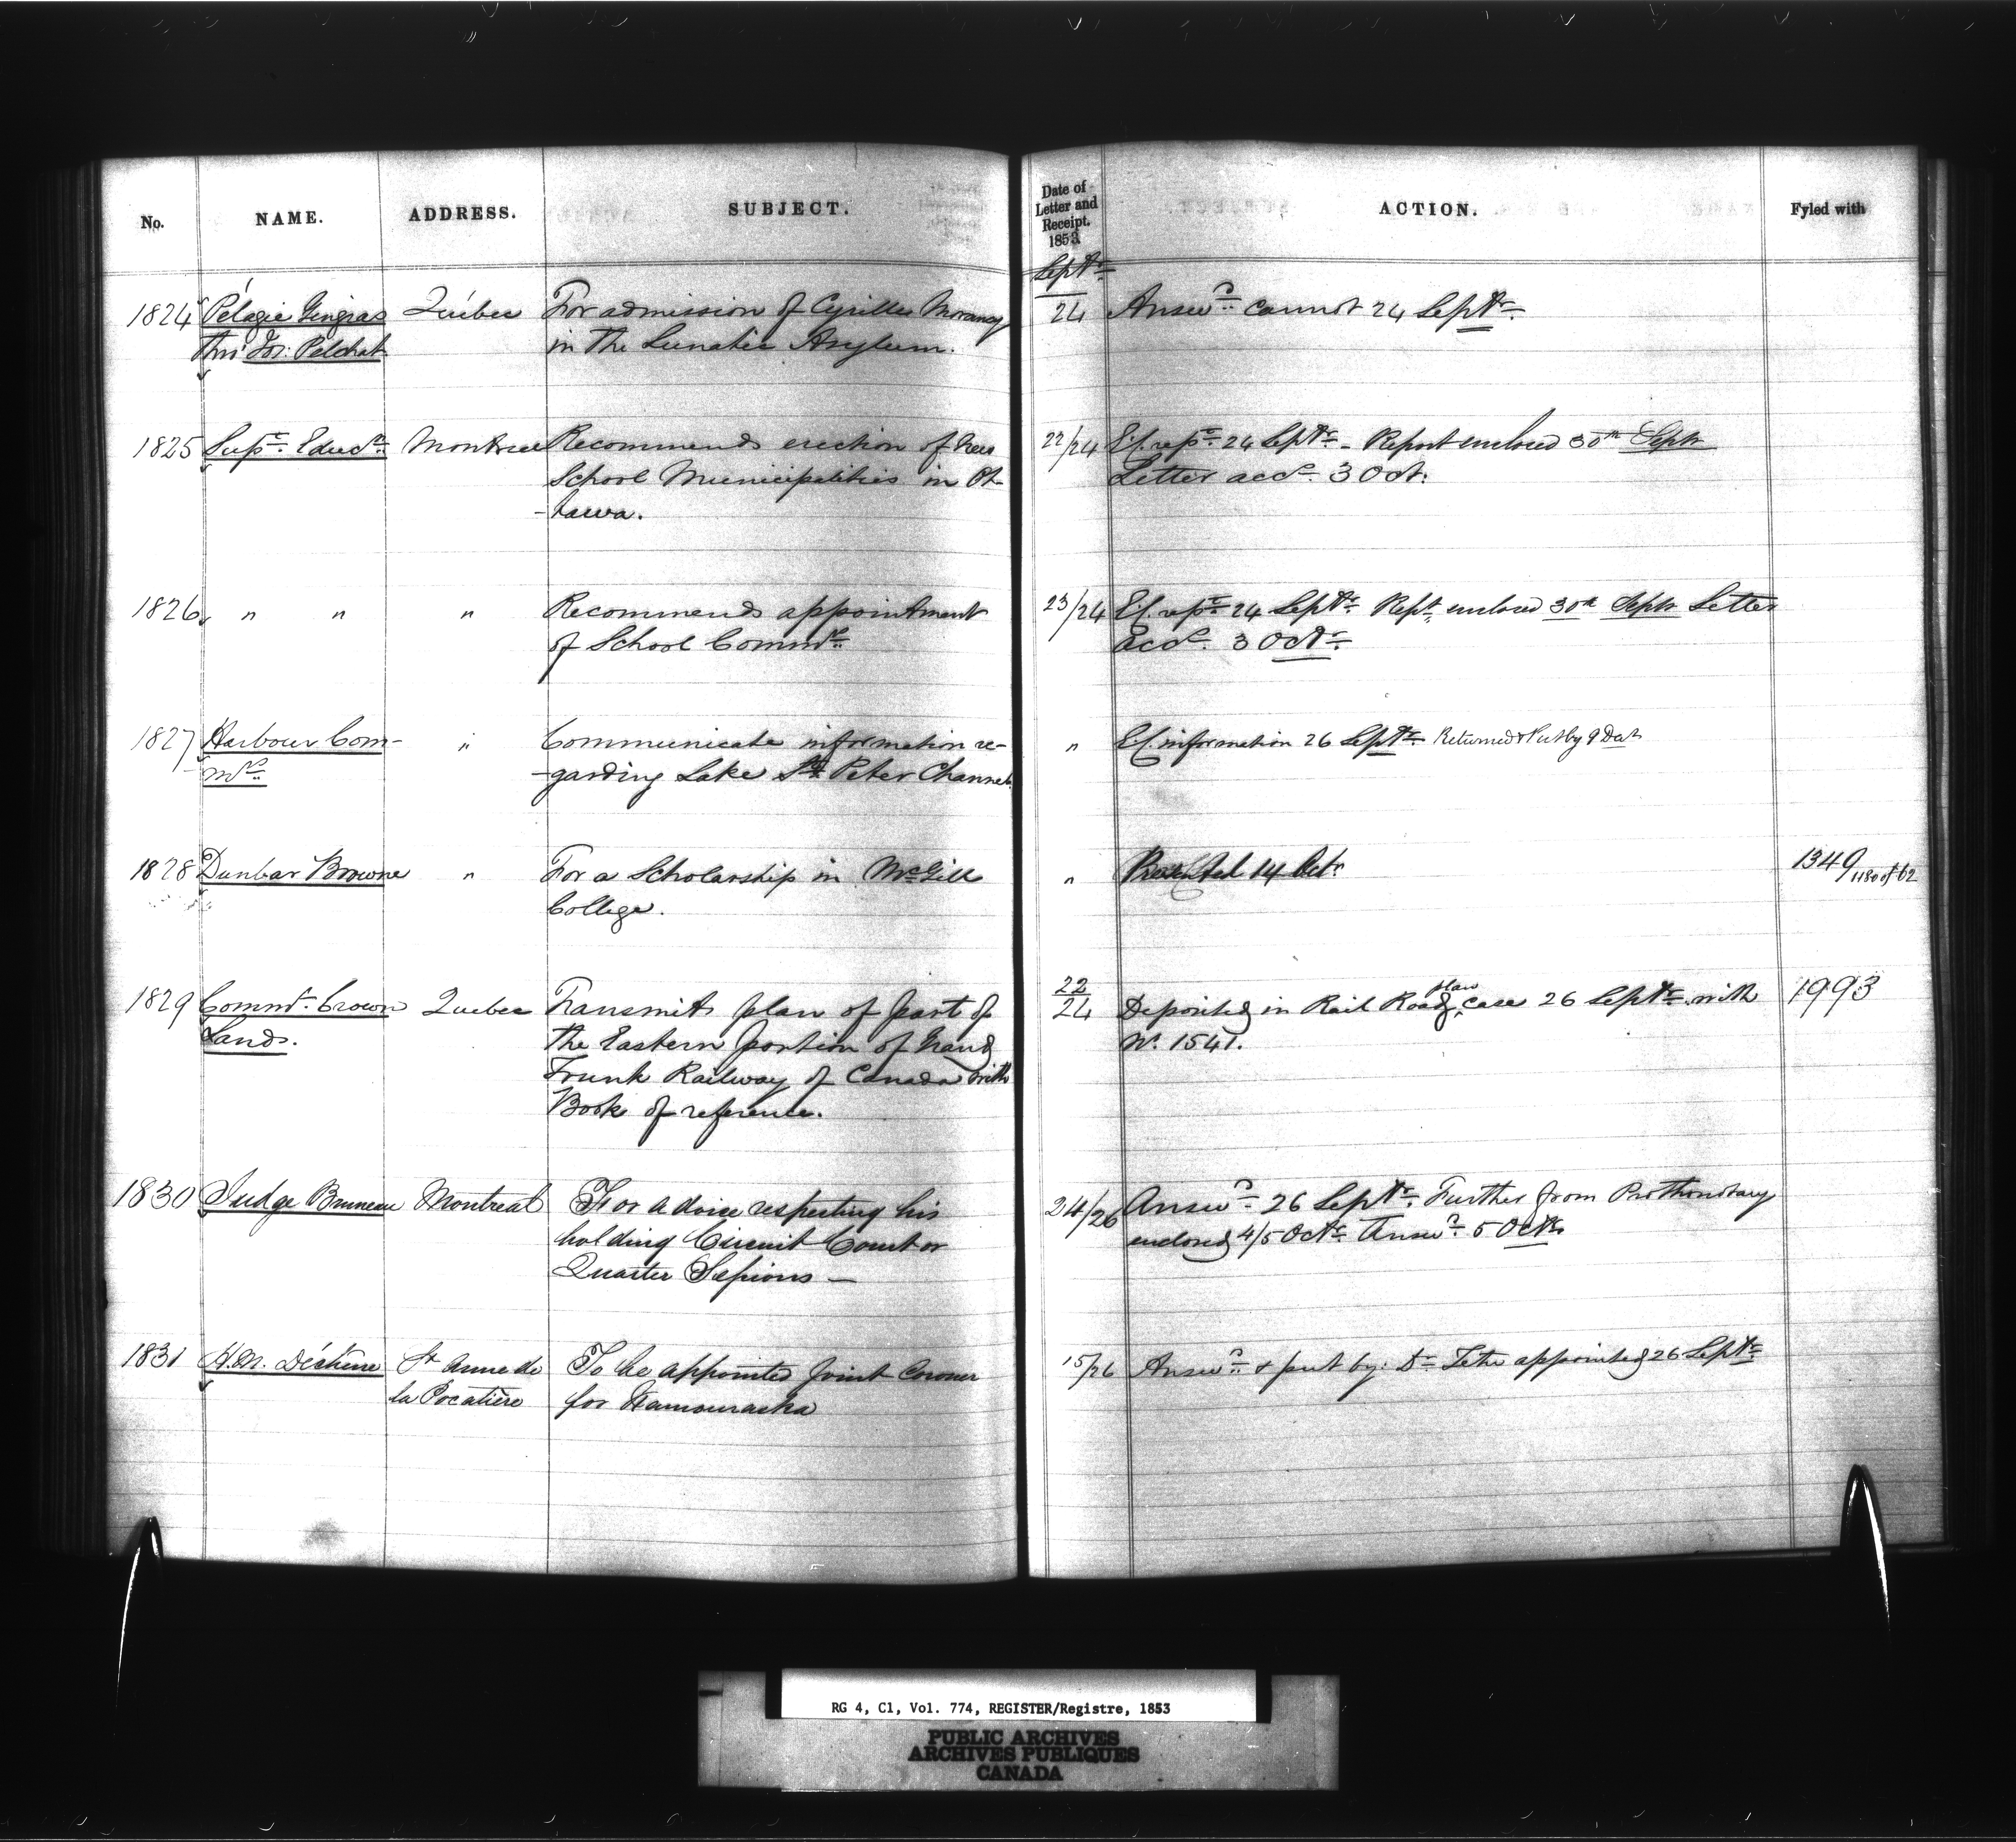 No. NAME. ADDRESS. SUBJECT. Date of Letter and Receipt. 1853 ACTION. Fyled with
Septr
1824 Pélagie Gingras Québec For admission of Cyrille Morancy 24 Answd cannot 24 Septr
thro' Jos: Pelchat in the Lunatic Asylum.
1825 Supt Educn Montreal Recommends erection of New 22/24 Ef. rept 24 Septr - Report enclosed 30th Septr
School Municipalities in Ot- Letter accd 3 Oct.
-tawa.
1826 " " " Recommends appointment 23/24 Ef. rept 24 Septr Rept enclosed 30th Septr Letter
of School Commrs accd 3 Octr
1827 Harbour Com- " Communicate information re- " Ef. information 26 Septr Returned & Put by 9 Dec
mrs -garding Lake St Peter Channel.
1828 Dunbar Browne " For a Scholarship in McGill " 14 Octr 1349/1180 of 62
College.
1829 Commr Crown Quebec Transmits plan of part of 22/24 Deposited in Rail Road plan case 26 Septr with 1993
Lands. the Eastern portion of Grand No 1541.
Trunk Railway of Canada with
Book of reference.
1830 Judge Bruneau Montreal For advice respecting his 24/26 Answd 26 Septr Further from Prothonotary
holding Circuit Court or enclosed 4/5 Octr Answd 5 Octr
Quarter Sessions —
1831 H.M. Déchène St Anne de To be appointed Joint Coroner 15/26 Answd & put by: Dr Tetu appointed 26 Septr
la Pocatière for Kamouraska
RG 4, C1, Vol. 774, REGISTER/Registre, 1853
PUBLIC ARCHIVES
ARCHIVES PUBLIQUES
CANADA